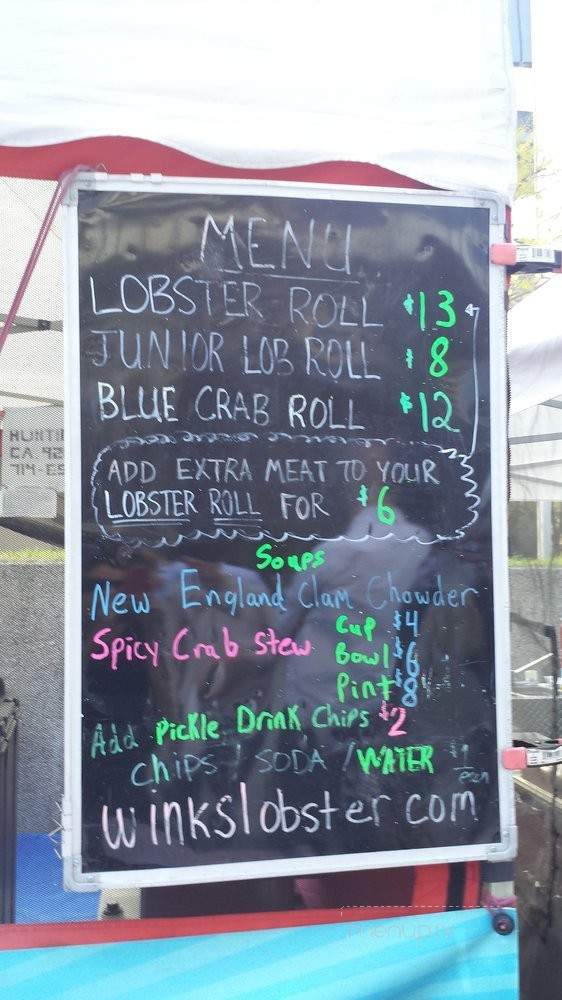 MENU
LOBSTER ROLL $13
JUNIOR LOB ROLL $8
BLUE CRAB ROLL $12
ADD EXTRA MEAT TO YOUR
LOBSTER ROLL FOR $6
Soups
New England Clam Chowder
Spicy Crab Stew
Cup $4
Bowl $6
Pint $8
Add Pickle Drink Chips $2
Chips / SODA / WATER $1 each
winkslobster.com
CA 92
714-